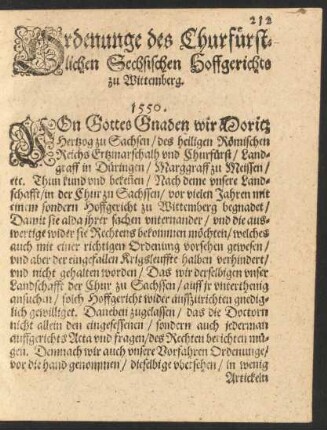 212
Ordenunge des Churfürst-
lichen Sechsischen Hoffgerichts
zu Wittemberg.
1550.
VOn Gottes Gnaden wir Moritz
Hertzog zu Sachsen / des heiligen Römischen
Reichs Ertzmarschalh vnd Churfürst / Land-
graff in Düringen / Marggraff zu Meissen /
etc. Thun kund vnd bekennen / Nach deme vnsere Land-
schafft / in der Chur zu Sachssen / vor vielen Jaren mit
einem sondern Hoffgericht zu Wittemberg begnadet /
Damit sie alda jhrer sachen vnternander / vnd die aus-
wertige wider sie Rechtens bekommen möchten / welches
auch mit einer richtigen Ordenung vorsehen gewesen /
vnd aber der eingefallen Kriegsleuffte halben verhindert /
vnd nicht gehalten worden / Das wir derselbigen vnser
Landschafft der Chur zu Sachssen / auff jr vnterthenig
ansuchen / solch Hoffgericht wider auffzurichten gnedig-
lich gewilliget. Daneben zugelassen / das die Doctorn
nicht allein den eingesessenen / sondern auch jederman
ausffgerichts Acta vnd fragen / des Rechten berichten mü-
gen. Demnach wir auch vnsere Vorfahren Ordenunge /
vor die hand genommen / dieselbige vbersehen / in wenig
Artickeln